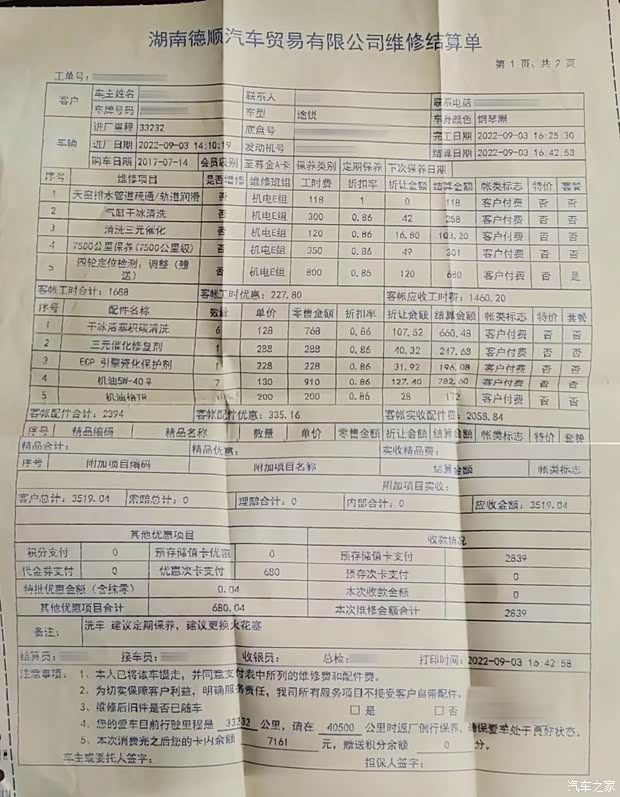 湖南德顺汽车贸易有限公司维修结算单
第 1 页, 共 2 页
工单号:
客户 车主姓名 联系人 联系电话
车牌号码 车型 途悦 车身颜色 钢琴黑
车辆 进厂里程 33232 底盘号 完工日期 2022-09-03 16:25:30
进厂日期 2022-09-03 14:10:19 发动机号 结算日期 2022-09-03 16:42:53
购车日期 2017-07-14 会员级别 至尊金A卡 保养类别 定期保养 下次保养日期
序号 维修项目 是否增修 维修班组 工时费 折扣率 折让金额 结算金额 帐类标志 特价 套餐
1 天窗排水管道疏通/轨道润滑 否 机电E组 118 1 0 118 客户付费 否 否
2 气缸干冰清洗 否 机电E组 300 0.86 42 258 客户付费 否 否
3 清洗三元催化 否 机电E组 120 0.86 16.80 103.20 客户付费 否 否
4 7500公里保养(7500公里级) 否 机电E组 350 0.86 49 301 客户付费 否 否
5 四轮定位检测,调整(赠送) 否 机电E组 800 0.85 120 680 客户付费 否 是
客帐工时合计: 1688 客帐工时优惠: 227.80 客帐应收工时费: 1460.20
序号 配件名称 数量 单价 零售金额 折扣率 折让金额 结算金额 帐类标志 特价 套餐
1 干冰活塞积碳清洗 6 128 768 0.86 107.52 660.48 客户付费 否 否
2 三元催化修复剂 1 288 288 0.86 40.32 247.68 客户付费 否 否
3 ECP 引擎瓷化保护剂 1 228 228 0.86 31.92 196.08 客户付费 否 否
4 机油5W-40 7 130 910 0.86 127.40 782.60 客户付费 否 否
5 机油格 200 200 0.86 28 172 客户付费 否 否
客帐配件合计: 2394 客帐配件优惠: 335.16 客帐实收配件费: 2058.84
序号 精品编码 精品名称 数量 单价 零售金额 折让金额 结算金额 帐类标志 特价 套餐
精品合计: 精品优惠: 实收精品费:
序号 附加项目编码 附加项目名称 结算金额 帐类标志
附加项目实收:
客户总计: 3519.04 索赔总计: 0 理赔合计: 0 内部合计: 0 应收金额: 3519.04
其他优惠项目 收款情况
积分支付 0 预存储值卡优惠 0 预存储值卡支付 2839
代金券支付 0 优惠次卡支付 680 预存次卡支付 0
特批优惠金额(含抹零) 0.04 本次收款金额 0
其他优惠项目合计 680.04 本次维修金额合计 2839
备注: 洗车 建议定期保养, 建议更换火花塞
结算员: 接车员: 收银员: 总检: 打印时间: 2022-09-03 16:42:58
注意事项: 1、本人已将该车提走, 并同意支付表中所列的维修费和配件费。
2、为切实保障客户利益, 明确服务责任, 我司所有服务项目不接受客户自带配件。
3、维修后旧件是否已随车 □ 是 □ 否
4、您的爱车目前行驶里程是 33232 公里, 请在 40500 公里时返厂例行保养, 确保爱车处于良好状态。
5、本次消费完之后您的卡内余额 7161 元, 赠送积分余额 0 分。
车主或委托人签字: 担保人签字:
汽车之家